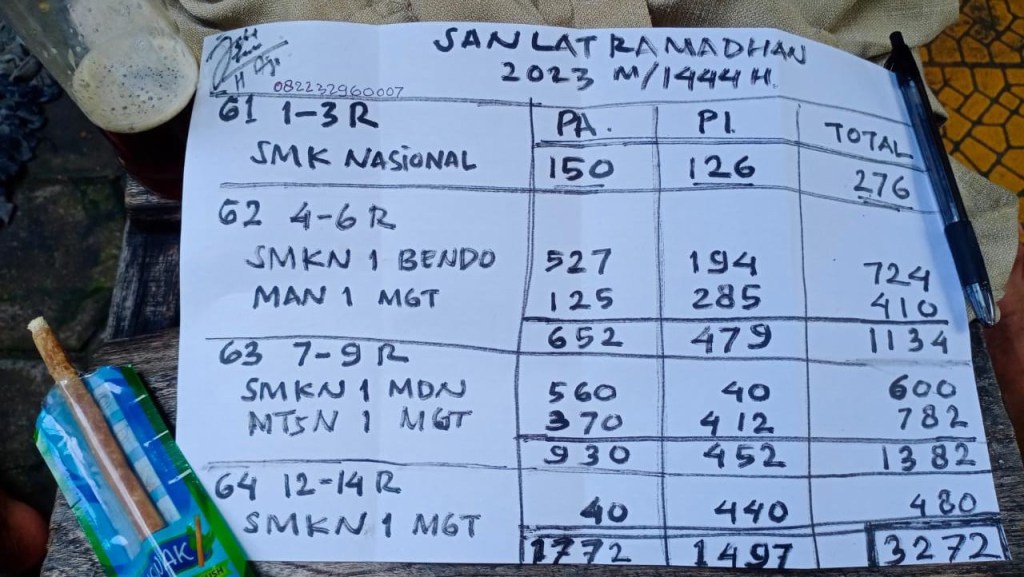 SANLAT RAMADHAN
2023 M/1444 H.
082232960007
61 1-3 R PA. PI. TOTAL
SMK NASIONAL 150 126 276
62 4-6 R
SMKN 1 BENDO 527 194 724
MAN 1 MGT 125 285 410
652 479 1134
63 7-9 R
SMKN 1 MDN 560 40 600
MTSN 1 MGT 370 412 782
930 452 1382
64 12-14 R
SMKN 1 MGT 40 440 480
1772 1497 3272